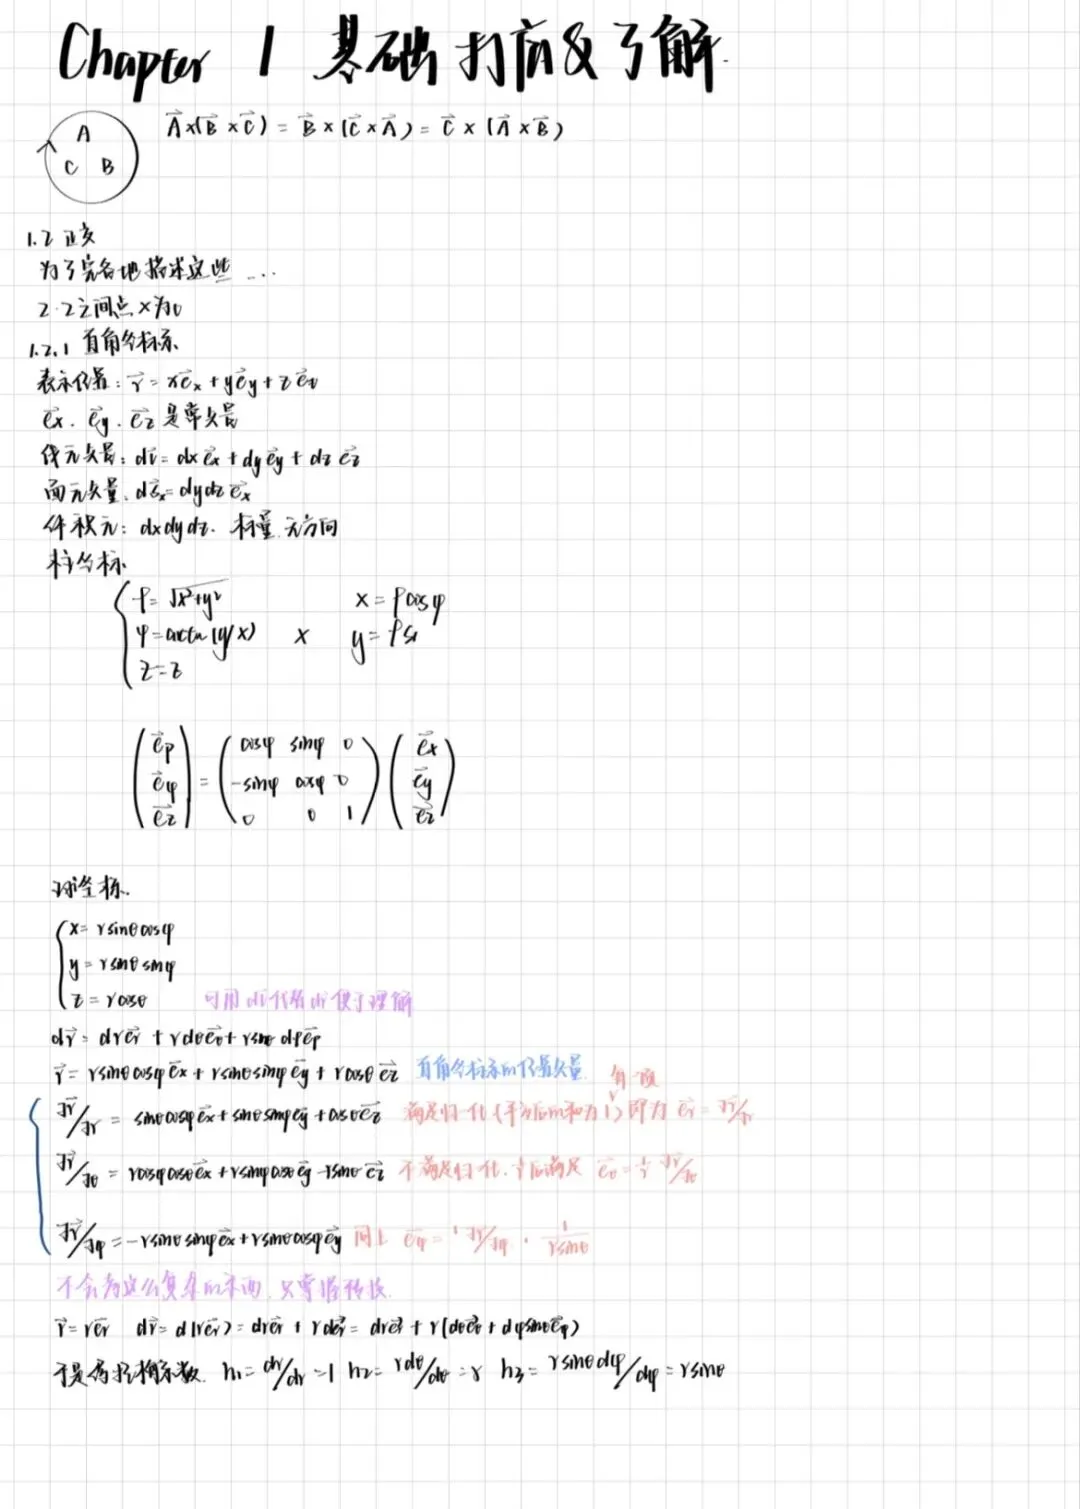 Chapter 1 基础打底&了解
A
C B
A⃗×(B⃗×C⃗) = B⃗×(C⃗×A⃗) = C⃗×(A⃗×B⃗)
1.2 正交
为了完备地描述这些 ...
2·2之间点×为0
1.2.1 直角坐标系
表示位置: r⃗ = xe⃗x + ye⃗y + ze⃗z
e⃗x. e⃗y. e⃗z 是单位矢量
线元矢量: dr⃗ = dx e⃗x + dy e⃗y + dz e⃗z
面元矢量. ds⃗x = dydz e⃗x
体积元: dxdydz. 标量 无方向
柱坐标
ρ = √x²+y² x = ρcosφ
φ = arctan(y/x) x y = ρsi
z = z
(e⃗ρ) = (cosφ sinφ 0) (e⃗x)
(e⃗φ) (-sinφ cosφ 0) (e⃗y)
(e⃗z) (0 0 1) (e⃗z)
球坐标.
x = rsinθcosφ
y = rsinθsinφ
z = rcosθ 可用dl代替dr便于理解
dr⃗ = dre⃗r + rdθe⃗θ + rsinθ dφe⃗φ
r⃗ = rsinθcosφ e⃗x + rsinθsinφ e⃗y + rcosθ e⃗z 直角坐标系的位置矢量
∂r⃗/∂r = sinθcosφe⃗x + sinθsinφe⃗y + cosθe⃗z 满足归一化(平方后的和为1)即为 e⃗r = ∂r⃗/∂r
∂r⃗/∂θ = rcosφcosθe⃗x + rsinφcosθe⃗y - rsinθ e⃗z 不满足归一化. 后满足 e⃗θ = 1/r ∂r⃗/∂θ
∂r⃗/∂φ = -rsinθsinφe⃗x + rsinθcosφe⃗y 同上 e⃗φ = ∂r⃗/∂φ · 1/rsinθ
不会考这么复杂的东西. 只掌握转换
r⃗ = re⃗r dr⃗ = d(re⃗r) = dre⃗r + rde⃗r = dre⃗r + r(dθe⃗θ + dφsinθe⃗φ)
于是有拉梅系数. h₁ = dr/dr = 1 h₂ = rdθ/dθ = r h₃ = rsinθdφ/dφ = rsinθ